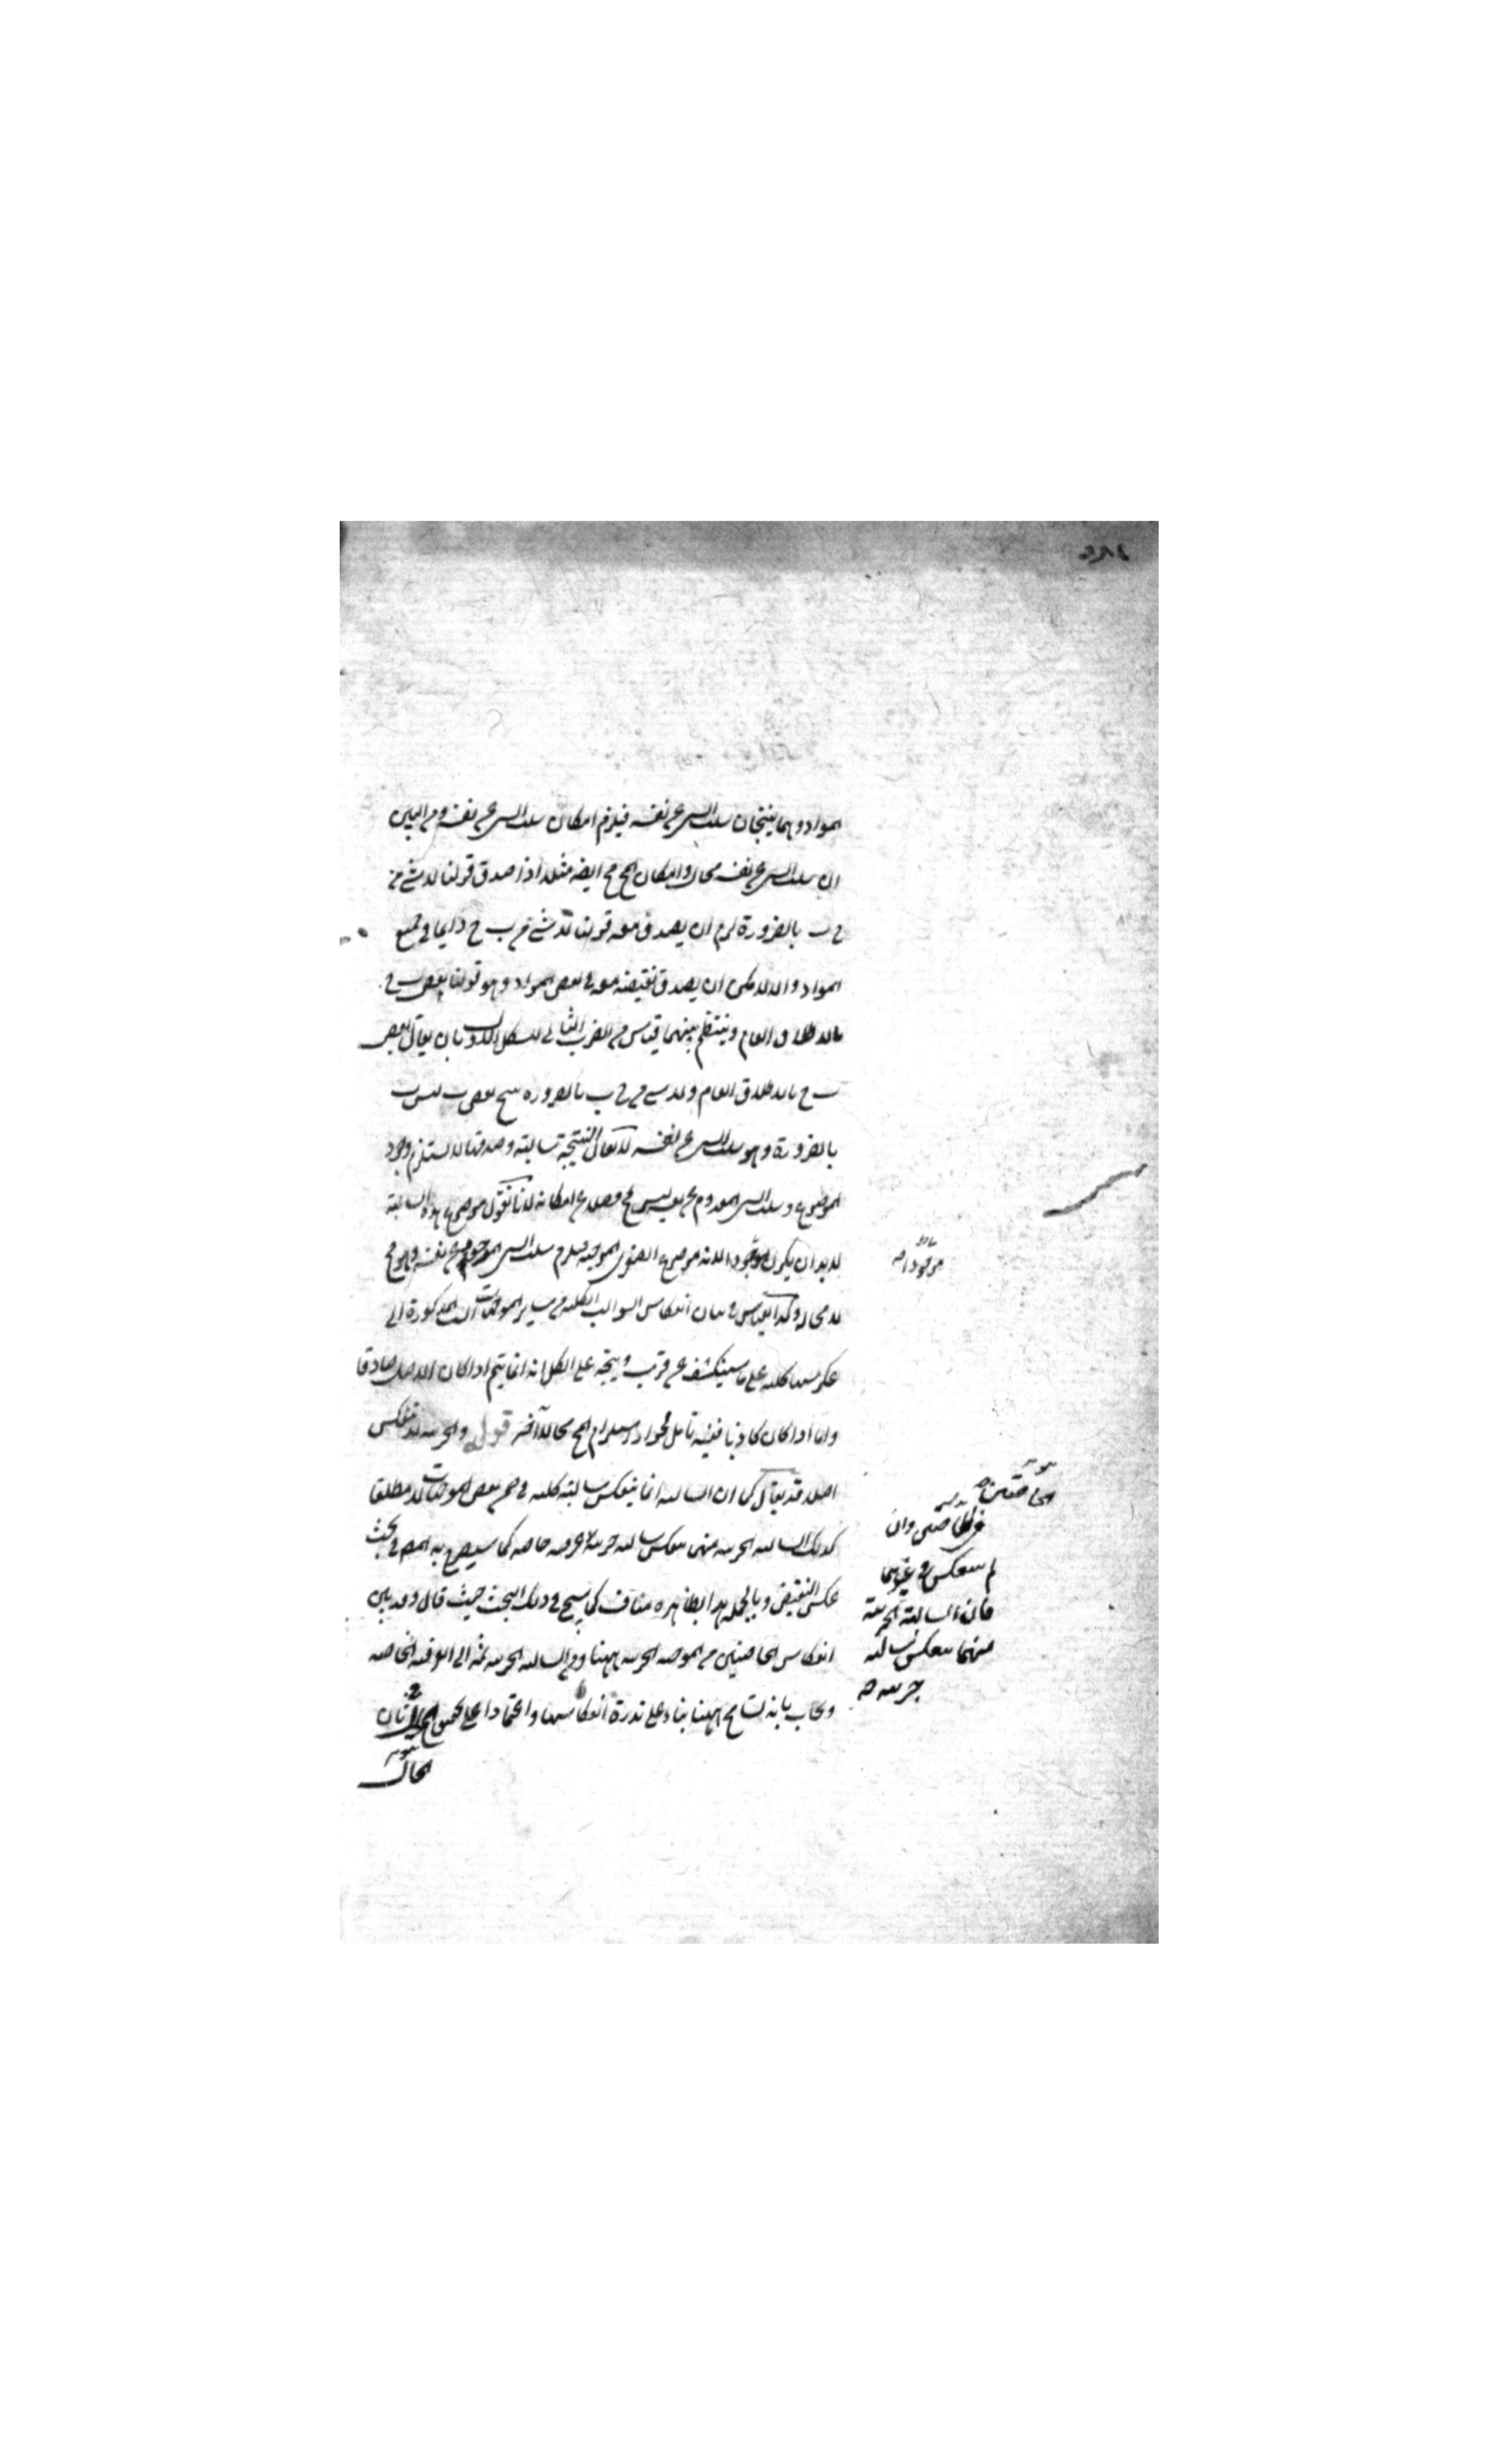 المواد وهما ينتجان سلب الشي عن نفسه فيلزم امكان سلب الشي عن نفسه ومن البين
ان سلب الشي عن نفسه محال وامكان المح مح ايضه مثلا اذا صدق قولنا لا شئ من
ج ب بالضرورة لزم ان يصدق معه قولنا لا شئ من ب ج دايما في جميع
المواد والا لامكن ان يصدق نقيضه معه في بعض المواد وهو قولنا بعض ب ج
بالاطلاق العام وينتظم بينهما قياس من الضرب الثاني للشكل الاول بان يقال بعض
ب ج بالاطلاق العام ولا شي من ج ب بالضروره ينتج بعض ب ليس ب
بالضرورة وهو سلب الشي عن نفسه لا يقال النتيجة سالبة وصدقها لا يستلزم وجود
الموضوع وسلب الشي المعدوم عن نفسه ليس مح فضلا عن امكانه لانا نقول موضوع هذه السالبة
لا بد ان يكون موجودا لانه موضوع الصغرى الموجبه فيلزم سلب الشي الموجود عن نفسه وهو مح
لا محاله وكذا القياس في بيان انعكاس السوالب الكليه من ساير الموجهات الست المذكورة الى
عكوسها كليه على ما سينكشف عن قريب ويتجه على الكل انه انما يتم اذا كان الاصل صادقا
واما اذا كان كاذبا ففيه تامل لجواز استلزام المح محالا آخر قوله والجزئيه لا تنعكس
اصلا قد يقال كما ان السالبه انما ينعكس سالبة كليه في بعض الموجهات لا مطلقا
كذلك السالبه الجزييه منها ينعكس سالبه جزييه عرفيه خاصه كما سيصرح به المص في بحث
عكس النقيض وبالجمله هذا بظاهره مناف لما يجئ في ذلك البحث حيث قال وقد بين
انعكاس الخاصتين من الموجبه الجزييه ههنا ومن السالبه الجزييه ثمه الى العرفيه الخاصه
ويجاب بانه تسامح ههنا بناء على ندرة انعكاسها واعتمادا على تحقيق الحال
الحال
موجودا
الخاصتين
في الخاصتين وان
لم ينعكس في غيرهما
فان السالبة الجزئية
منهما ينعكس سالبه
جزييه